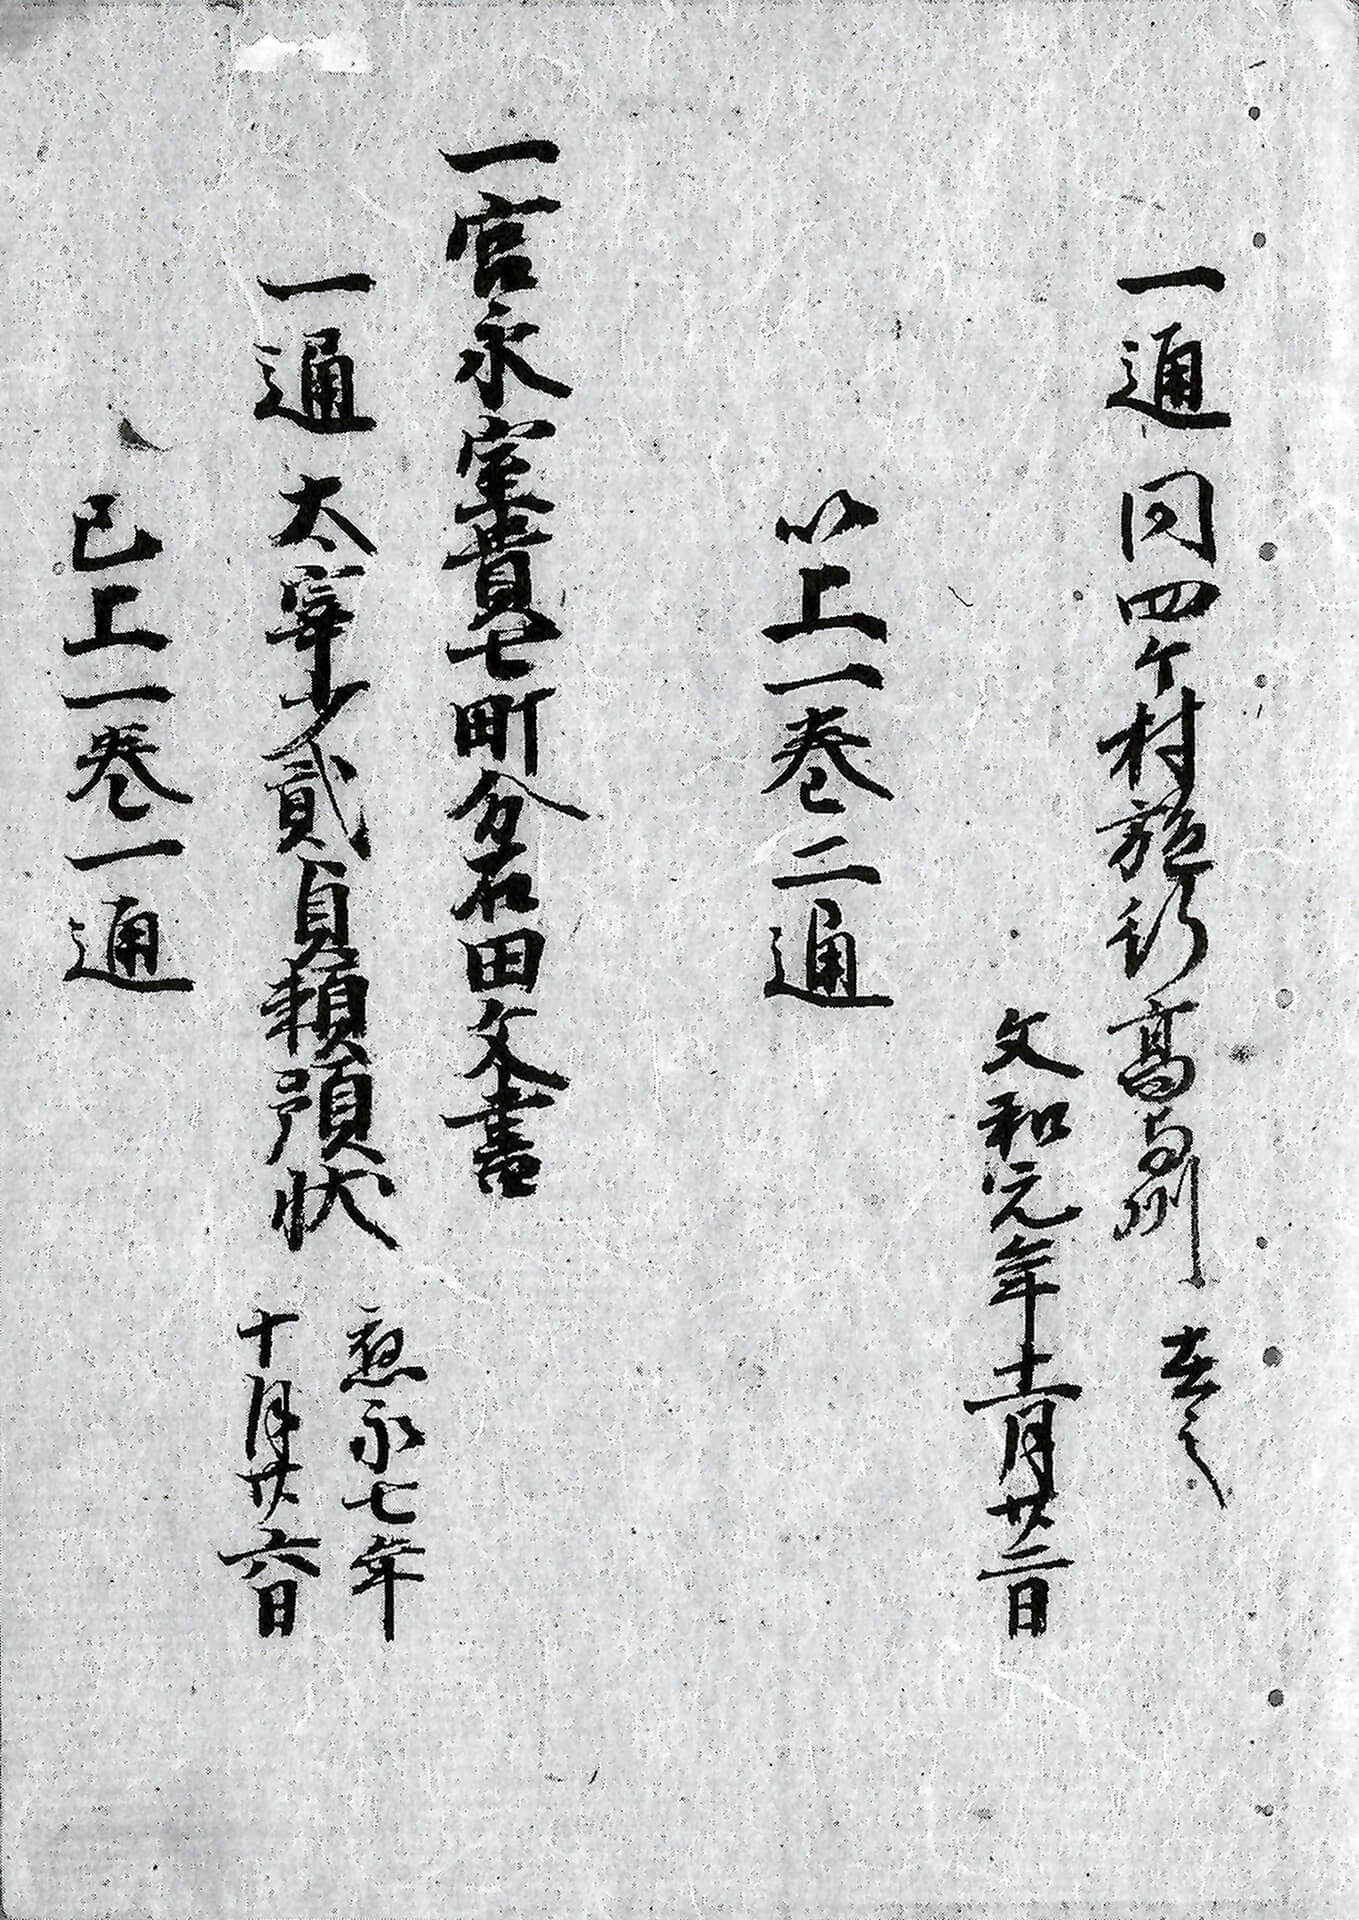 一通 同四ケ村施行 高 州 在之
文和元年十二月廿二日
以上一巻二通
一宮永室貴七町分石田文書
一通 太宰少貳貞頼預状 應永七年
十月廿六日
已上一巻一通